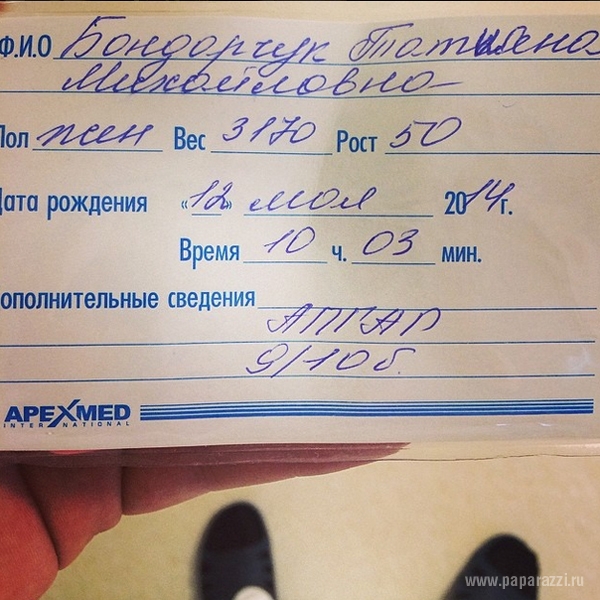 Ф.И.О Бондарчук Татьяна
Михайловна
Пол жен Вес 3170 Рост 50
Дата рождения «12» мая 2014г.
Время 10 ч. 03 мин.
ополнительные сведения
АПГАР
9/10 б.
APEXMED
INTERNATIONAL
www.paparazzi.ru